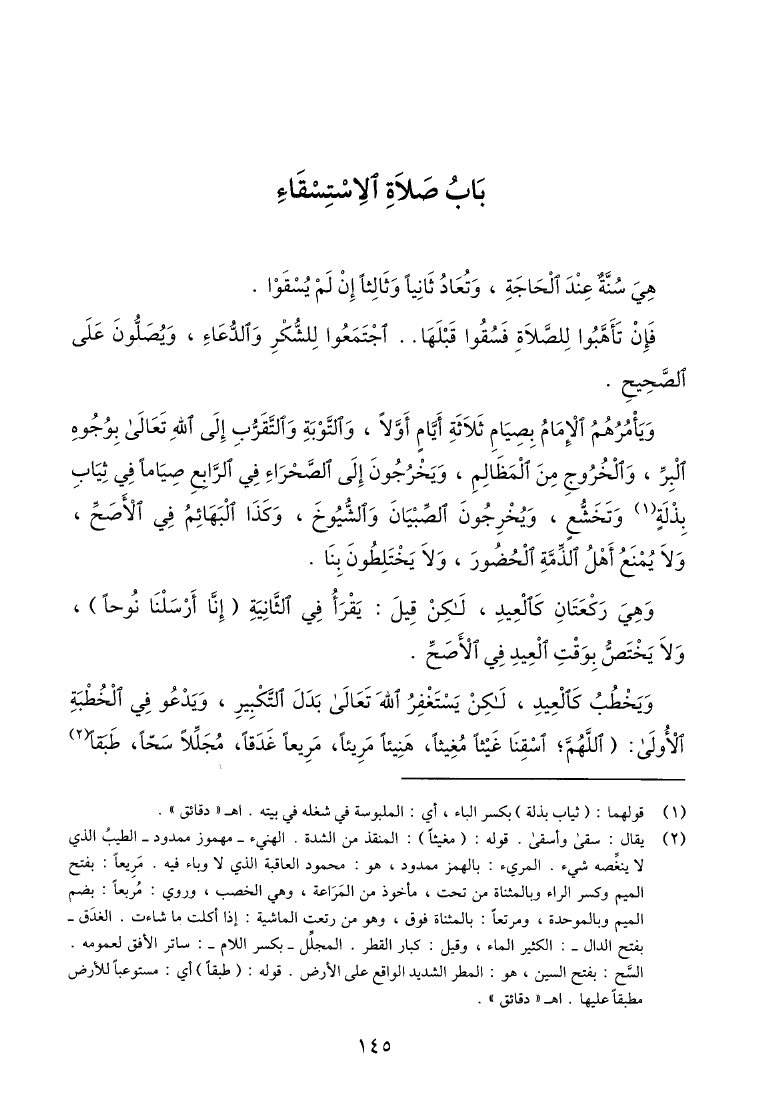 بَابُ صَلاَةِ ٱلِاسْتِسْقَاءِ
هِيَ سُنَّةٌ عِنْدَ ٱلْحَاجَةِ ، وَتُعَادُ ثَانِياً وَثَالِثاً إِنْ لَمْ يُسْقَوْا .
فَإِنْ تَأَهَّبُوا لِلصَّلاَةِ فَسُقُوا قَبْلَهَا . . ٱجْتَمَعُوا لِلشُّكْرِ وَٱلدُّعَاءِ ، وَيُصَلُّونَ عَلَى
ٱلصَّحِيحِ .
وَيَأْمُرُهُمُ ٱلإِمَامُ بِصِيَامِ ثَلاَثَةِ أَيَّامٍ أَوَّلاً ، وَٱلتَّوْبَةِ وَٱلتَّقَرُّبِ إِلَى ٱللهِ تَعَالَىٰ بِوُجُوهِ
ٱلْبِرِّ ، وَٱلْخُرُوجِ مِنَ ٱلْمَظَالِمِ ، وَيَخْرُجُونَ إِلَى ٱلصَّحْرَاءِ فِي ٱلرَّابِعِ صِيَاماً فِي ثِيَابِ
بِذْلَةٍ(١) وَتَخَشُّعٍ ، وَيُخْرِجُونَ ٱلصِّبْيَانَ وَٱلشُّيُوخَ ، وَكَذَا ٱلْبَهَائِمُ فِي ٱلأَصَحِّ ،
وَلاَ يُمْنَعُ أَهْلُ ٱلذِّمَّةِ ٱلْحُضُورَ ، وَلاَ يَخْتَلِطُونَ بِنَا .
وَهِيَ رَكْعَتَانِ كَٱلْعِيدِ ، لَـٰكِنْ قِيلَ : يَقْرَأُ فِي ٱلثَّانِيَةِ ( إِنَّا أَرْسَلْنَا نُوحاً ) ،
وَلاَ يَخْتَصُّ بِوَقْتِ ٱلْعِيدِ فِي ٱلأَصَحِّ .
وَيَخْطُبُ كَٱلْعِيدِ ، لَـٰكِنْ يَسْتَغْفِرُ ٱللهَ تَعَالَىٰ بَدَلَ ٱلتَّكْبِيرِ ، وَيَدْعُو فِي ٱلْخُطْبَةِ
ٱلأُولَىٰ : ( ٱللَّهُمَّ؛ ٱسْقِنَا غَيْثاً مُغِيثاً، هَنِيئاً مَرِيئاً، مَرِيعاً غَدَقاً، مُجَلِّلاً سَحّاً، طَبَقاً(٢)
(١) قولهما : ( ثياب بذلة ) بكسر الباء ، أي : الملبوسة في شغله في بيته . اهـ « دقائق » .
(٢) يقال : سقىٰ وأسقىٰ . قوله : ( مغيثاً ) : المنقذ من الشدة . الهنيء ـ مهموز ممدود ـ الطيبُ الذي
لا ينغّصه شيء . المريء : بالهمز ممدود ، هو : محمود العاقبة الذي لا وباء فيه . مَريعاً : بفتح
الميم وكسر الراء وبالمثناة من تحت ، مأخوذ من المَرَاعة ، وهي الخصب ، وروي : مُربعاً : بضم
الميم وبالموحدة ، ومرتعاً : بالمثناة فوق ، وهو من رتعت الماشية : إذا أكلت ما شاءت . الغدَق ـ
بفتح الدال ـ : الكثير الماء ، وقيل : كبار القطر . المجلّل ـ بكسر اللام ـ : ساتر الأفق لعمومه .
السَّح : بفتح السين ، هو : المطر الشديد الواقع على الأرض . قوله : ( طبقاً ) أي : مستوعباً للأرض
مطبقاً عليها . اهـ « دقائق » .
١٤٥